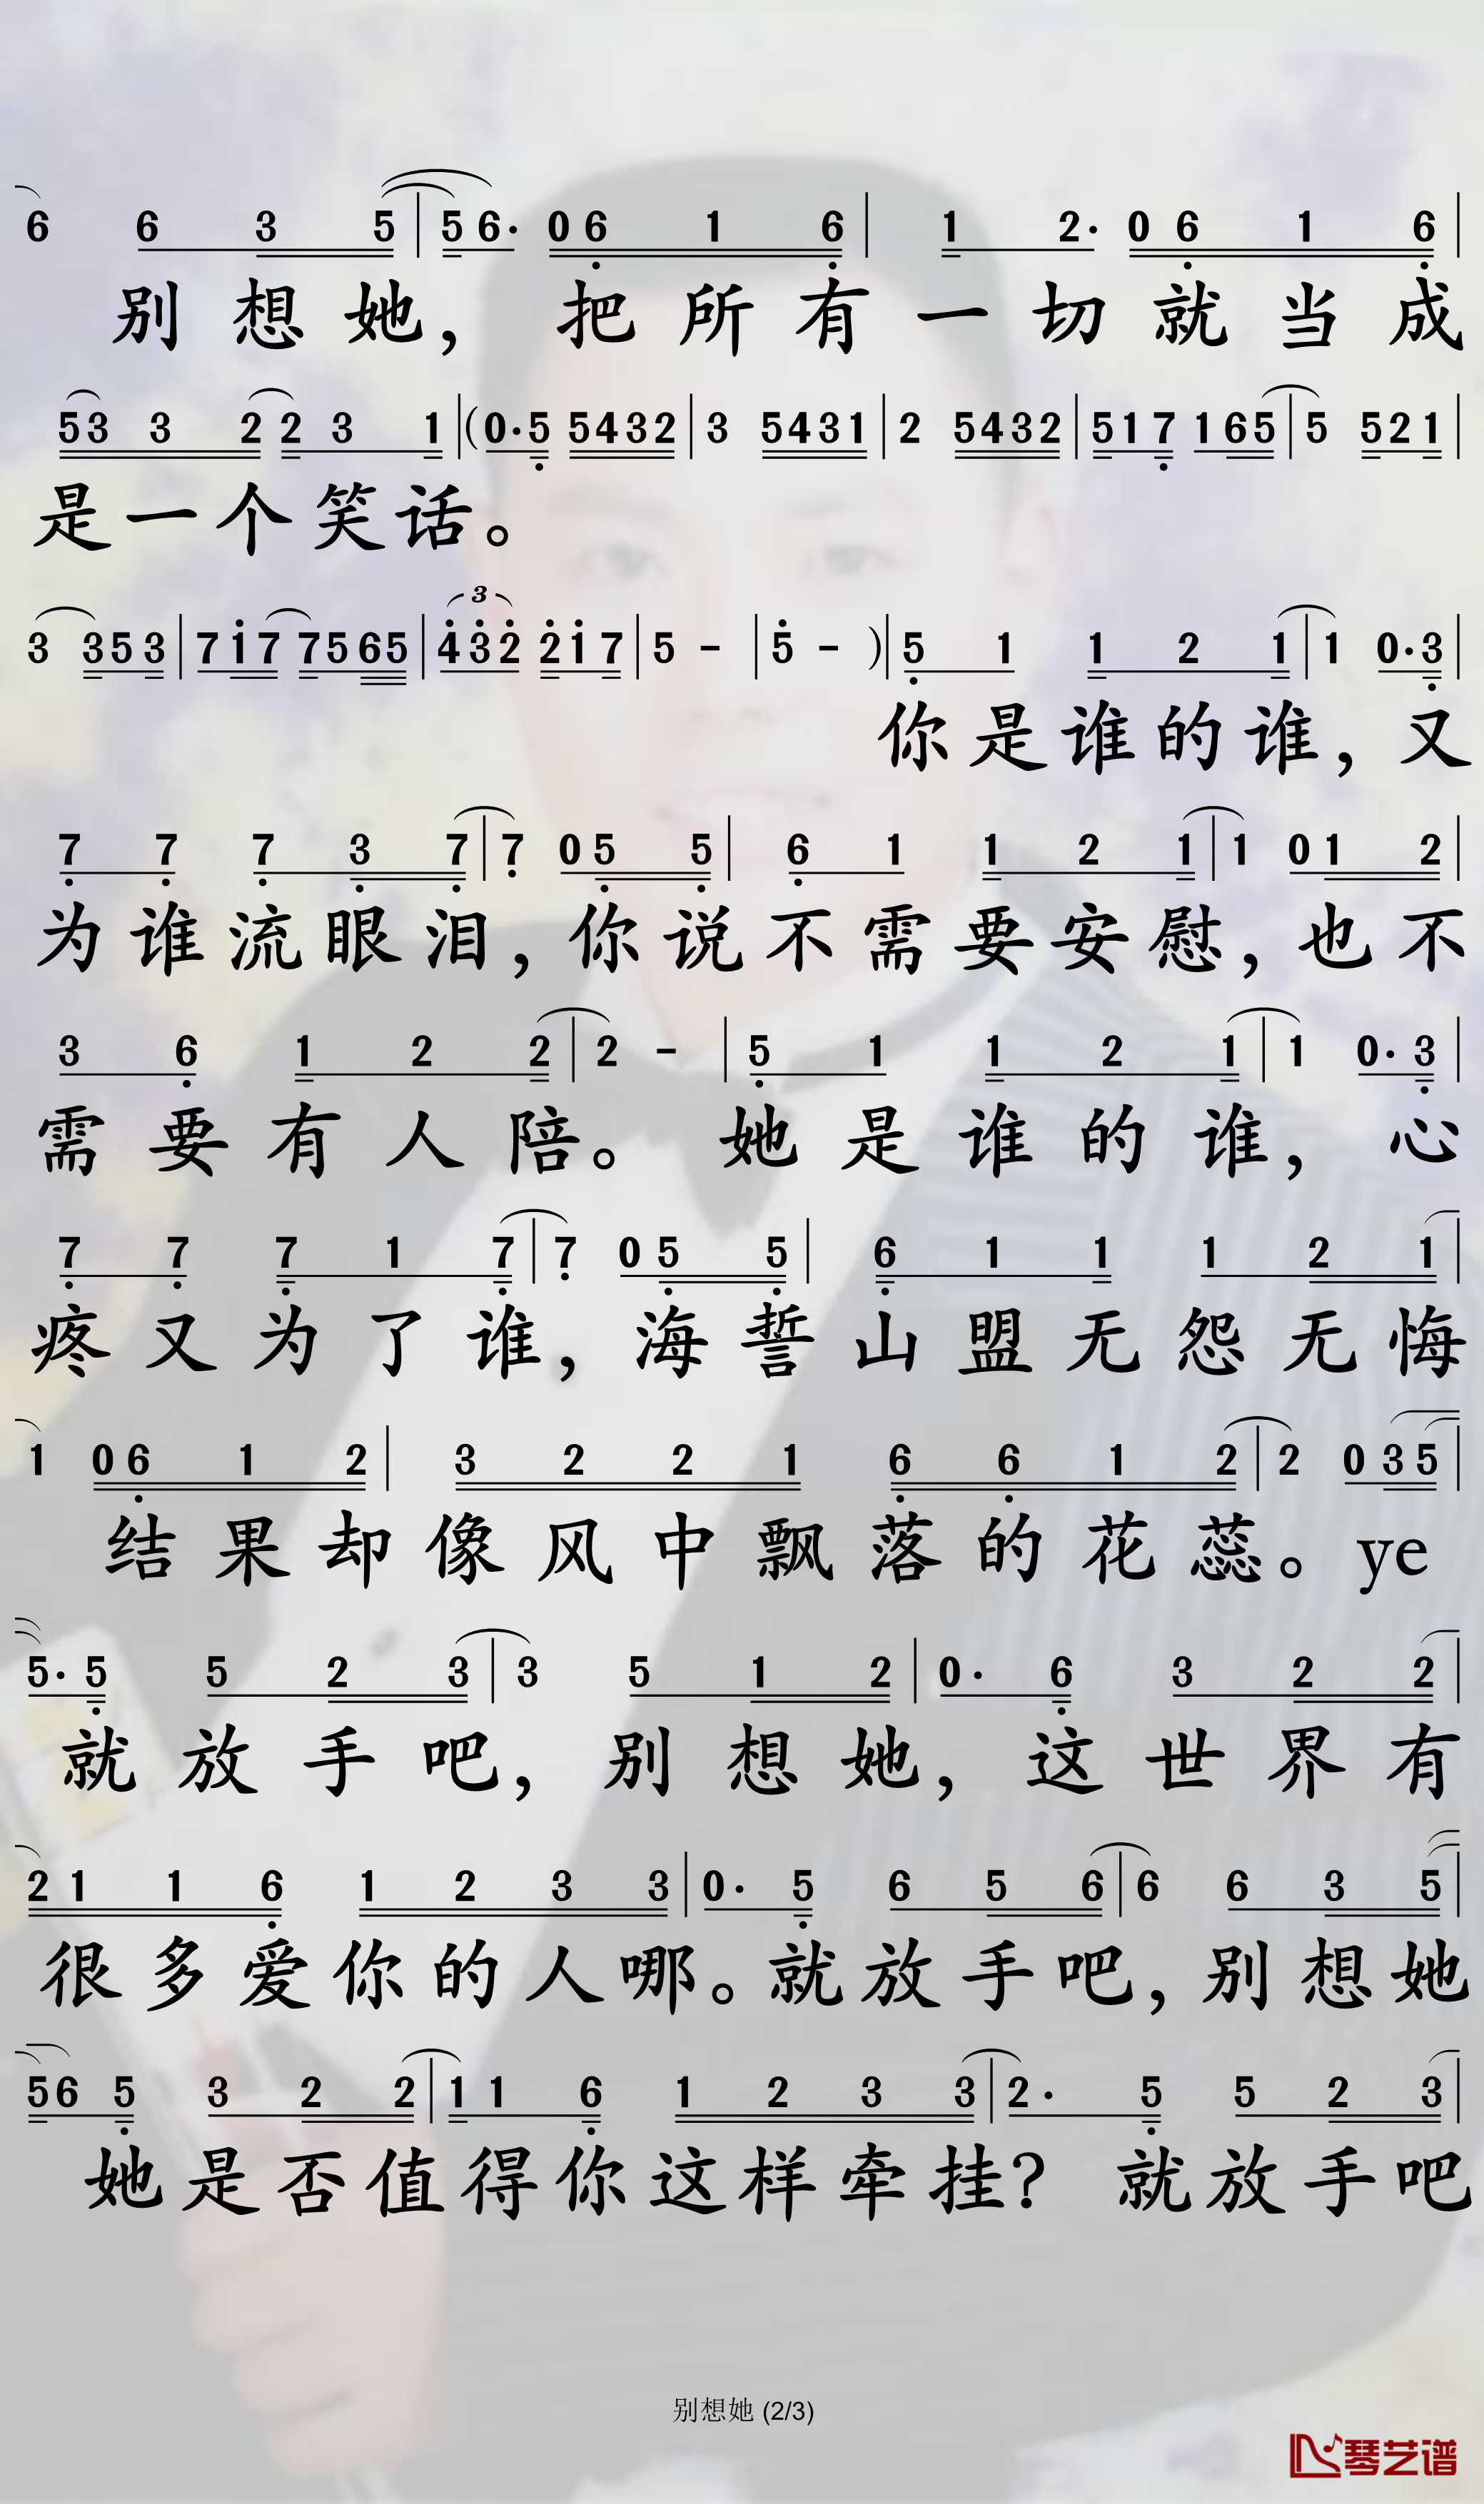 6 6 3 5 | 5 6· 0 6 1 6 | 1 2· 0 6 1 6 |
别想她，把所有一切就当成
5 3 3 2 2 3 1 | (0·5 5432 | 3 5431 | 2 5432 | 517 165 | 5 521 |
是一个笑话。
3 353 | 717 7565 | 3 432 217 | 5 - | 5 - ) | 5 1 1 2 1 | 1 0·3 |
你是谁的谁，又
7 7 7 3 7 | 7 0 5 5 | 6 1 1 2 1 | 1 0 1 2 |
为谁流眼泪，你说不需要安慰，也不
3 6 1 2 2 | 2 - | 5 1 1 2 1 | 1 0· 3 |
需要有人陪。她是谁的谁，心
7 7 7 1 7 | 7 0 5 5 | 6 1 1 1 2 1 |
疼又为了谁，海誓山盟无怨无悔
1 0 6 1 2 | 3 2 2 1 6 6 1 2 | 2 0 3 5 |
结果却像风中飘落的花蕊。ye
5· 5 5 2 3 | 3 5 1 2 | 0· 6 3 2 2 |
就放手吧，别想她，这世界有
2 1 1 6 1 2 3 3 | 0· 5 6 5 6 | 6 6 3 5 |
很多爱你的人哪。就放手吧，别想她
5 6 5 3 2 2 | 1 1 6 1 2 3 3 | 2· 5 5 2 3 |
她是否值得你这样牵挂？就放手吧
别想她 (2/3)
琴艺谱